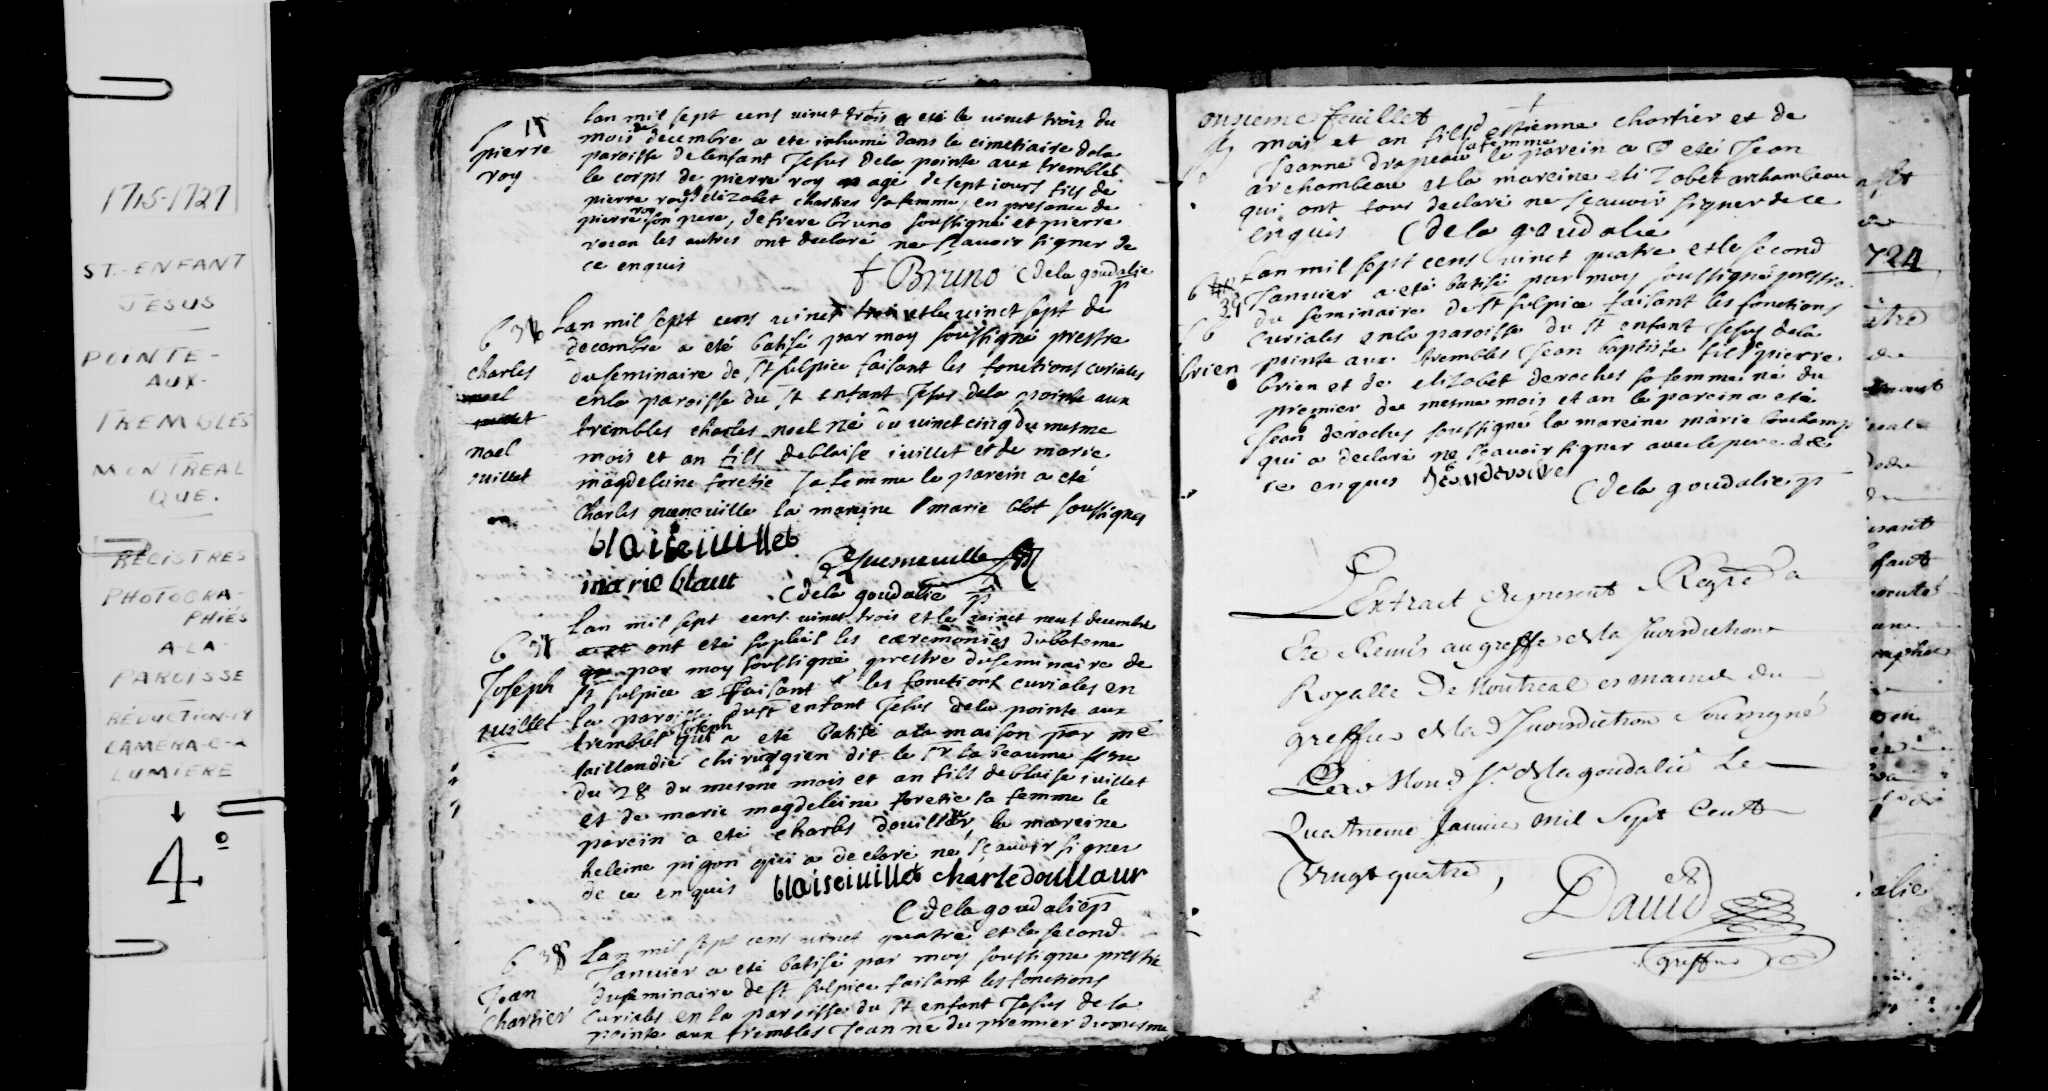 1715-1727
ST. ENFANT
JESUS
POINTE-
AUX-
TREMBLES
MONTREAL
QUE.
REGISTRES
PHOTOGRA-
PHIÉS
A-LA-
PAROISSE
RÉDUCTION-14
CAMERA-C-2
LUMIERE
4º
17
pierre
roy
Lan mil sept cens vinct trois et le vinct trois du
mois de decembre a ete inhumé dans le cimetiaire de la
paroisse de lenfant Jesus de la pointe aux trembles
le corps de pierre roy agé de sept iours fils de
pierre roy et delizabet chartier sa femme, en presence de
pierre roy son pere, de frere bruno soussigné et pierre
les autres ont declaré ne sçavoir signer de
ce enquis
f Bruno C dela goudalie p
b 36
charles
noel
juillet
noel
juillet
Lan mil sept cens vinct trois et le vinct sept de
decembre a eté batisé par moy soussigné prestre
du seminaire de st sulpice faisant les fonctions curiales
en la paroisse du st enfant Jesus de la pointe aux
trembles charles noel né du vinct cinq du mesme
mois et an fils de blaise iuillet et de marie
magdeleine foretie sa femme le parein a eté
charles queneville la mareine marie blot soussignes
blaise iuillet
Quesneuille
marie blaut C dela goudalie p
b 37
Joseph
juillet
Lan mil sept cens vinct trois et le vinct neuf decembre
ont eté supleé les cæremonies du bateme
par moy soussigné prestre du seminaire de
st sulpice faisant les fonctions curiales en
la paroisse du st enfant Jesus de la pointe aux
trembles qui Joseph a eté batisé a la maison par me
taillandié chirurgien dit le sr la beaume né
du 28 du mesme mois et an fils de blaise iuillet
et de marie magdeleine foretie sa femme le
parein a eté charles douillier, la mareine
heleine pigon qui a declaré ne sçavoir signer
de ce enquis blaise iuillet charle doullaur
C dela goudalie p
b 38
Jean
chartier
Lan mil sept cens vinct quatre et le second
Janvier a eté batisé par moy soussigné prestre
du seminaire de st sulpice faisant les fonctions
curiales en la paroisse du st enfant Jesus de la
pointe aux trembles Jean né du premier du mesme
onsieme feuillet
mois et an fils d'estienne chartier et de
Jeanne drapeau sa femme le parein a eté Jean
archambeau et la mareine elizabet archambeau
qui ont tous declaré ne sçavoir signer de ce
enquis C dela goudalie
b 39
brien
Lan mil sept cens vinct quatre et le second
Janvier a eté batisé par moy soussigné prestre
du seminaire de st sulpice faisant les fonctions
curiales en la paroisse du st enfant Jesus de la
pointe aux trembles Jean baptiste fils de pierre
brien et de elizabet deroches sa femme né du
premier du mesme mois et an le parein a eté
Jean deroches soussigné la mareine marie
qui a declaré ne sçavoir signer avec le pere de
ce enques
C dela goudalie p
L'Extraict du present Regre a
Ete Remis au greffe de la Jurisdiction
Royalle De Montreal es mains du
greffier de lad Jurisdiction Soussigné
Par Mond sr dela goudalie Le
Quatrieme Janvier mil Sept Cent
Vingt quatre,
David
greffier
724